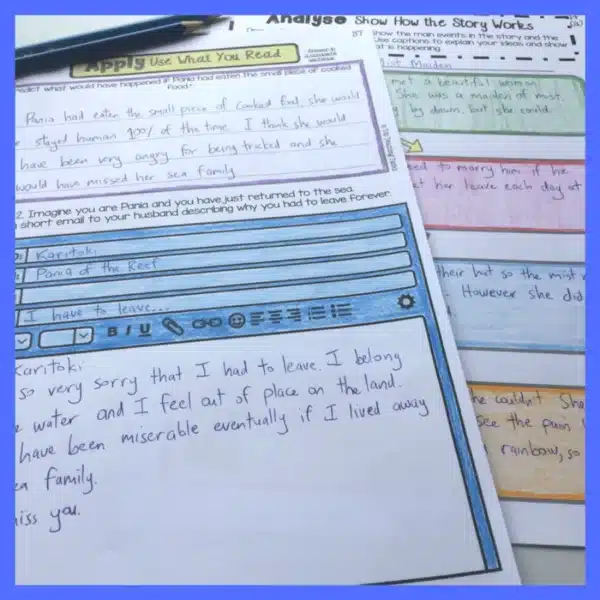 Apply Use What You Read
what would have happened if Pania had eaten the small piece of cooked
food.
Pania had eaten the small piece of cooked food, she would
stayed human 100% of the time. I think she would
have been very angry for being tricked and she
would have missed her sea family
2. Imagine you are Pania and you have just returned to the sea.
short email to your husband describing why you had to leave forever.
Karitoki
Pania of the Reef
I have to leave...
B I U
Karitoki
so very sorry that I had to leave. I belong
water and I feel out of place on the land.
have been miserable eventually if I lived away
family.
miss you.
37
Analyse Show How the Story Works
Show the main events in the story and the
Use captions to explain your ideas and show
is happening.
Mist Maiden
met a beautiful woman
She was a maiden of mist.
by dawn, but she could
to marry him if he
let her leave each day at
their hut so the mist
However she did
he couldn't She
see the pain
rainbow, so